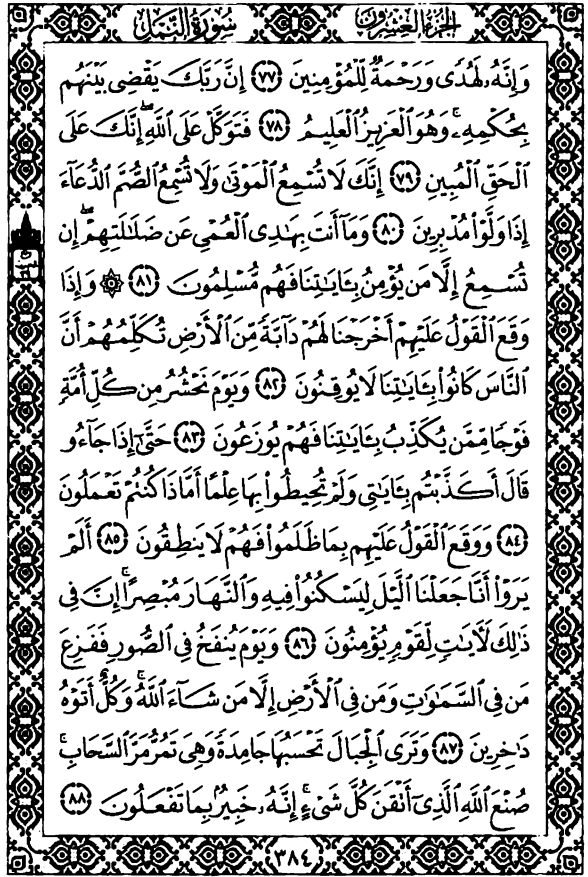 الجزء العشرون
سورة النمل
وَإِنَّهُۥ لَهُدًى وَرَحْمَةٌ لِّلْمُؤْمِنِينَ ٧٧ إِنَّ رَبَّكَ يَقْضِى بَيْنَهُم
بِحُكْمِهِۦۚ وَهُوَ ٱلْعَزِيزُ ٱلْعَلِيمُ ٧٨ فَتَوَكَّلْ عَلَى ٱللَّهِۖ إِنَّكَ عَلَى
ٱلْحَقِّ ٱلْمُبِينِ ٧٩ إِنَّكَ لَا تُسْمِعُ ٱلْمَوْتَىٰ وَلَا تُسْمِعُ ٱلصُّمَّ ٱلدُّعَآءَ
إِذَا وَلَّوْا۟ مُدْبِرِينَ ٨٠ وَمَآ أَنتَ بِهَـٰدِى ٱلْعُمْىِ عَن ضَلَـٰلَتِهِمْۖ إِن
تُسْمِعُ إِلَّا مَن يُؤْمِنُ بِـَٔايَـٰتِنَا فَهُم مُّسْلِمُونَ ٨١ ۞ وَإِذَا
وَقَعَ ٱلْقَوْلُ عَلَيْهِمْ أَخْرَجْنَا لَهُمْ دَآبَّةً مِّنَ ٱلْأَرْضِ تُكَلِّمُهُمْ أَنَّ
ٱلنَّاسَ كَانُوا۟ بِـَٔايَـٰتِنَا لَا يُوقِنُونَ ٨٢ وَيَوْمَ نَحْشُرُ مِن كُلِّ أُمَّةٍ
فَوْجًا مِّمَّن يُكَذِّبُ بِـَٔايَـٰتِنَا فَهُمْ يُوزَعُونَ ٨٣ حَتَّىٰٓ إِذَا جَآءُو
قَالَ أَكَذَّبْتُم بِـَٔايَـٰتِى وَلَمْ تُحِيطُوا۟ بِهَا عِلْمًا أَمَّاذَا كُنتُمْ تَعْمَلُونَ
٨٤ وَوَقَعَ ٱلْقَوْلُ عَلَيْهِم بِمَا ظَلَمُوا۟ فَهُمْ لَا يَنطِقُونَ ٨٥ أَلَمْ
يَرَوْا۟ أَنَّا جَعَلْنَا ٱلَّيْلَ لِيَسْكُنُوا۟ فِيهِ وَٱلنَّهَارَ مُبْصِرًاۚ إِنَّ فِى
ذَٰلِكَ لَـَٔايَـٰتٍ لِّقَوْمٍ يُؤْمِنُونَ ٨٦ وَيَوْمَ يُنفَخُ فِى ٱلصُّورِ فَفَزِعَ
مَن فِى ٱلسَّمَـٰوَٰتِ وَمَن فِى ٱلْأَرْضِ إِلَّا مَن شَآءَ ٱللَّهُۚ وَكُلٌّ أَتَوْهُ
دَٰخِرِينَ ٨٧ وَتَرَى ٱلْجِبَالَ تَحْسَبُهَا جَامِدَةً وَهِىَ تَمُرُّ مَرَّ ٱلسَّحَابِۚ
صُنْعَ ٱللَّهِ ٱلَّذِىٓ أَتْقَنَ كُلَّ شَىْءٍۚ إِنَّهُۥ خَبِيرٌۢ بِمَا تَفْعَلُونَ ٨٨
٣٨٤